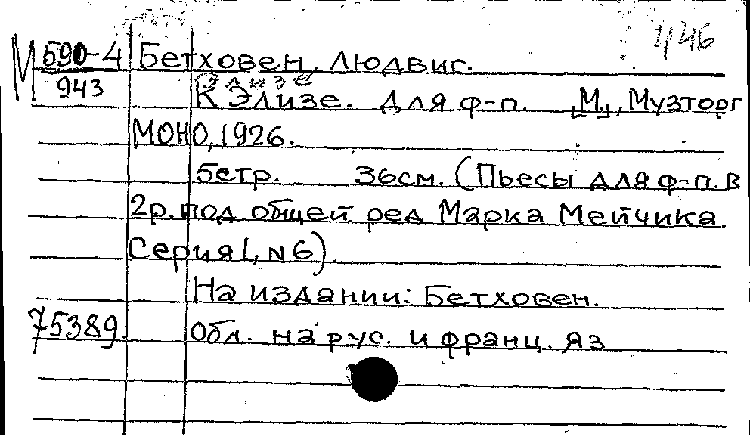 1/46
М 590-4 Бетховен, Людвиг.
943 К Элизе. Для ф-п. [М.], Музторг
МОНО, 1926.
5стр. 36см. (Пьесы для ф-п. в
2р. под общей ред Марка Мейчика.
Серия I, N6)
На издании: Бетховен.
75389 Обл. на рус. и франц. яз